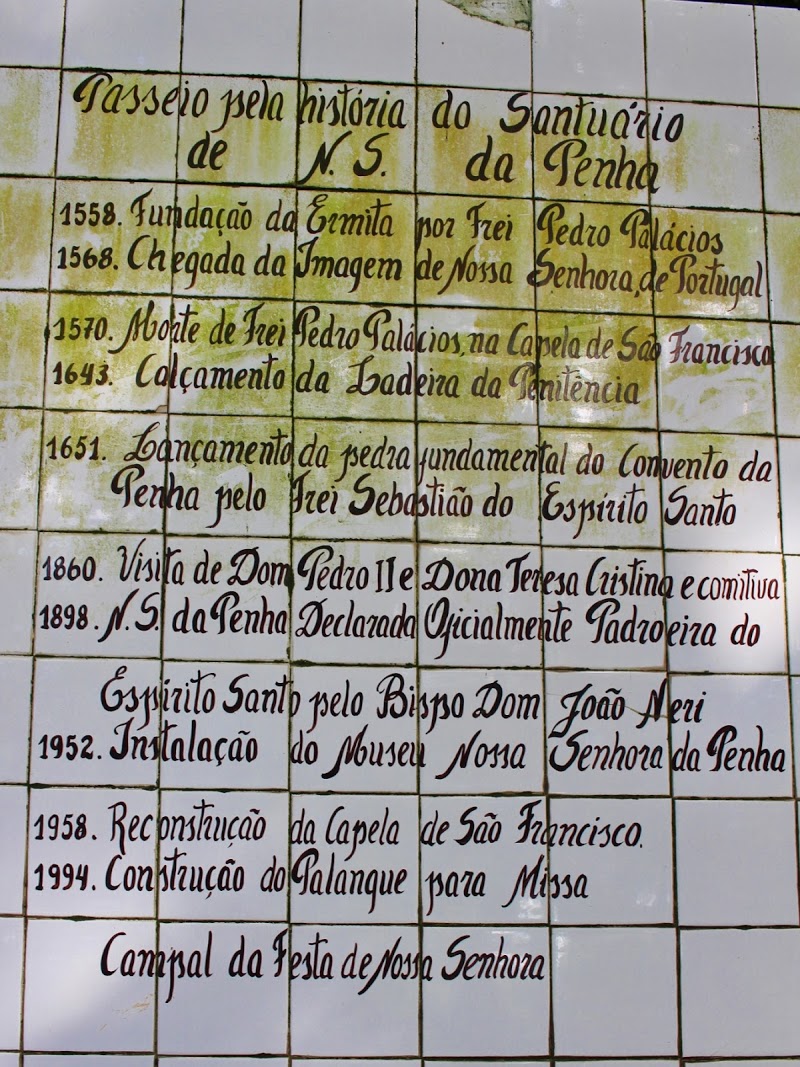 Passeio pela história do Santuário
de N. S. da Penha
1558. Fundação da Ermita por Frei Pedro Palácios
1568. Chegada da Imagem de Nossa Senhora, de Portugal
1570. Morte de Frei Pedro Palácios, na Capela de São Francisco
1643. Calçamento da Ladeira da Penitência
1651. Lançamento da pedra fundamental do Convento da
Penha pelo Frei Sebastião do Espírito Santo
1860. Visita de Dom Pedro II e Dona Teresa Cristina e comitiva
1898. N. S. da Penha Declarada Oficialmente Padroeira do
Espírito Santo pelo Bispo Dom João Neri
1952. Instalação do Museu Nossa Senhora da Penha
1958. Reconstrução da Capela de São Francisco.
1994. Construção do Palanque para Missa
Campal da Festa de Nossa Senhora